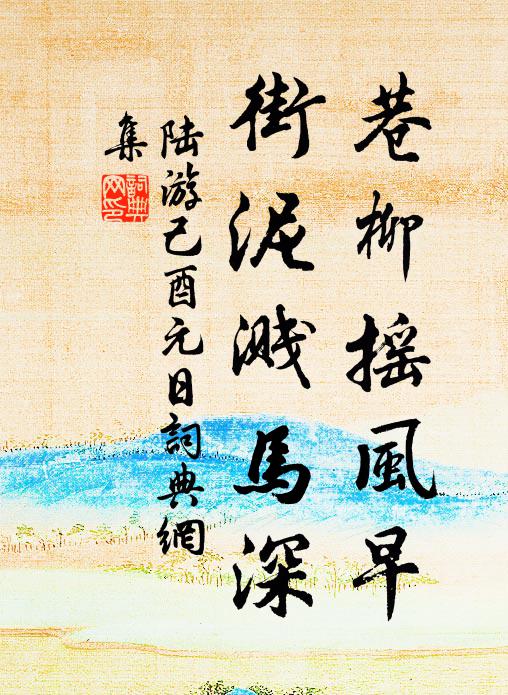 巷柳摇風早
街泥濺馬深
陆游己酉元日詞典網
集
詞典
网印